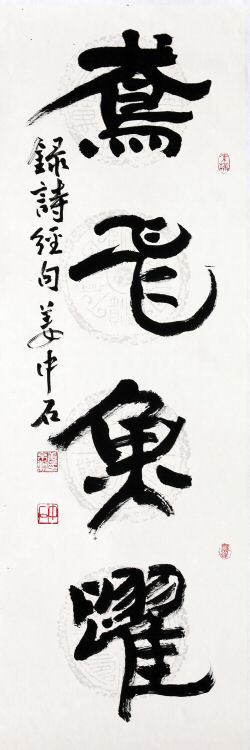 鳶飛魚躍
録詩經句姜中石